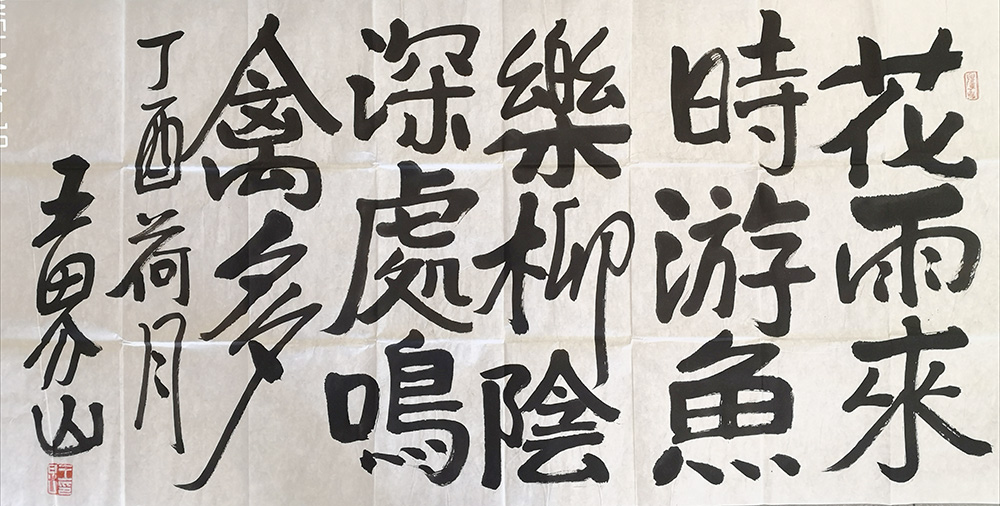 花雨來
時游魚
樂柳陰
深處鳴
禽多
丁酉荷月
王界山